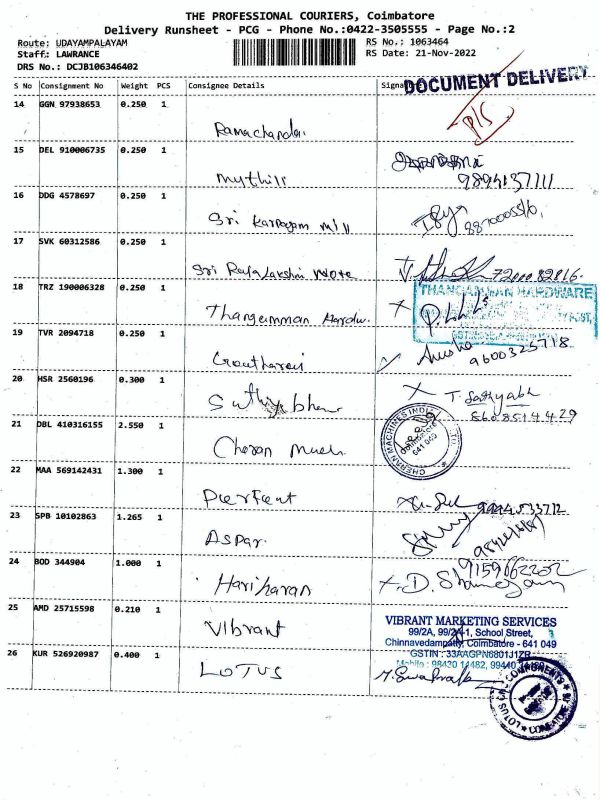 THE PROFESSIONAL COURIERS, Coimbatore
Delivery Runsheet - PCG - Phone No.:0422-3505555 - Page No.:2
Route: UDAYAMPALAYAM
RS No.: 1063464
Staff: LAWRANCE
RS Date: 21-Nov-2022
DRS No.: DCJB106346402
DOCUMENT DELIVERY
S No Consignment No Weight PCS Consignee Details Signa
14 GGN 97938653 0.250 1
P/S
Ramachandar
15 DEL 910006735 0.250 1
Mythili
9894137111
16 DDG 4578697 0.250 1
Sri Karpagam Mill
17 SVK 60312586 0.250 1
Sri Rajalakshmi
7200082016
18 TRZ 190006328 0.250 1
THANGAMMAN HARDWARE
Thangamman Hardw.
19 TVR 2094718 0.250 1
Anusha
9600325718
20 HSR 2560196 0.300 1
T. Sathyabh
Sathyabhama
8608514429
21 DBL 410316155 2.550 1
CHERAN MACHINES INDIA
641 049
Cheran
22 MAA 569142431 1.300 1
Perfect
9994533712
23 SPB 10102863 1.265 1
Aspar
24 BOD 344904 1.000 1
9159662202
Hariharan
25 AMD 25715598 0.210 1
VIBRANT MARKETING SERVICES
99/2A, 99/2A-1, School Street,
Chinnavedampatty, Coimbatore - 641 049
GSTIN : 33AAGPN6801J1ZR
Vibrant
26 KUR 526920987 0.400 1
Mobile : 98420 14482, 99440
LOTUS
LOTUS CNC COMPONENTS